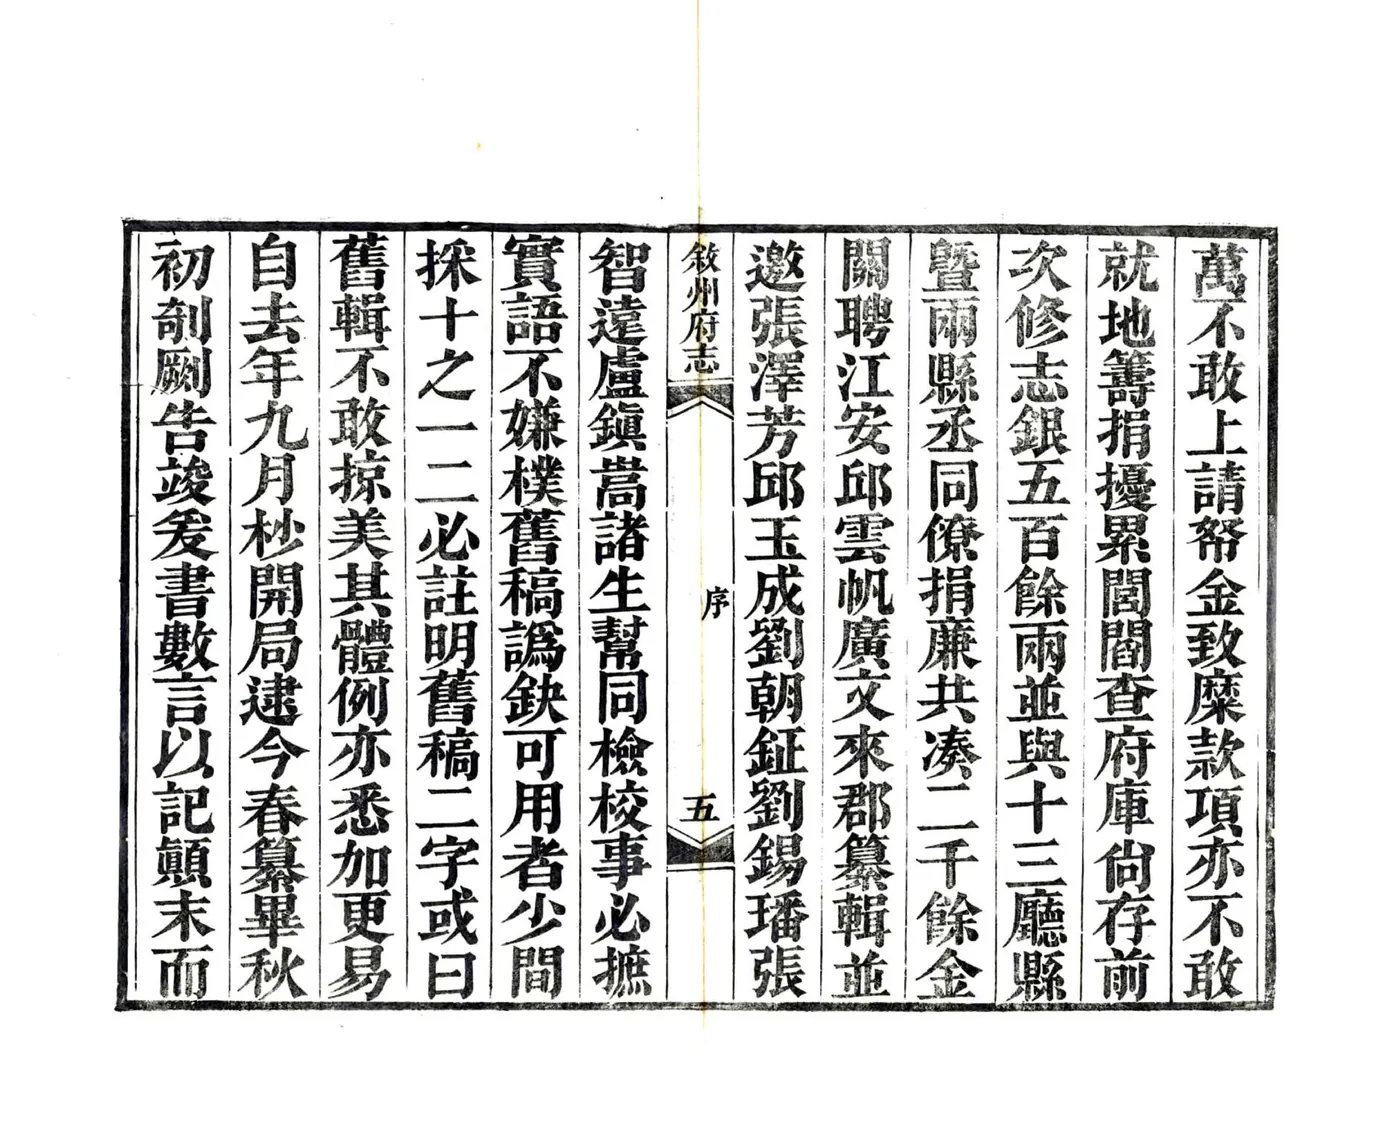 萬不敢上請帑金致糜款項亦不敢
就地籌捐擾累閭閻查府庫尙存前
次修志銀五百餘兩並與十三廳縣
暨兩縣丞同僚捐廉共湊二千餘金
關聘江安邱雲帆廣文來郡纂輯並
邀張澤芳邱玉成劉朝鉦劉錫璠張
敘州府志
序
五
智遠盧鎭嵩諸生幫同檢校事必摭
實語不嫌樸舊稿譌缺可用者少間
採十之一二必註明舊稿二字或曰
舊輯不敢掠美其體例亦悉加更易
自去年九月杪開局逮今春纂畢秋
初剞劂告竣爰書數言以記顚末而